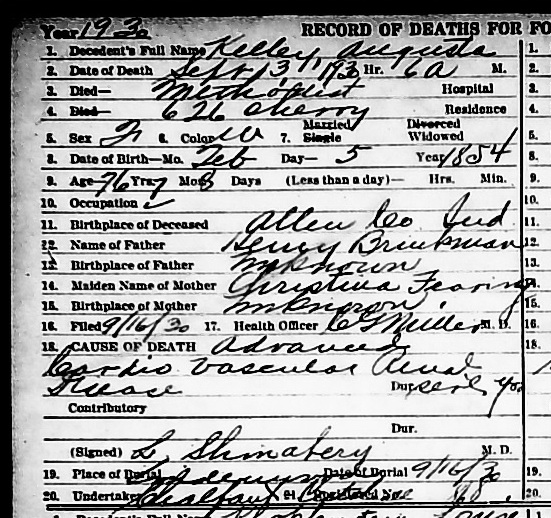 Year 1930 RECORD OF DEATHS FOR FO
1. Decedent's Full Name Kelley, Augusta 1.
2. Date of Death Sept 13, 1930 Hr. 6 A M. 2.
3. Died— Methodist Hospital 3.
4. Died— 626 Cherry Residence 4.
5. Sex F 6. Color W 7. Married Single Divorced Widowed 5.
8. Date of Birth—Mo. Feb Day— 5 Year 1854 8.
9. Age— 76 Yrs. 7 Mos. 8 Days (Less than a day)— Hrs. Min. 9.
10. Occupation 10.
11. Birthplace of Deceased Allen Co Ind 11.
12. Name of Father Henry Brinkman 12.
13. Birthplace of Father unknown 13.
14. Maiden Name of Mother Christina 14.
15. Birthplace of Mother unknown 15.
16. Filed 9/16/30 17. Health Officer Miller M. D. 16.
18. CAUSE OF DEATH Advanced 18.
Cardio Vascular Renal
Disease Dur.
Contributory
Dur.
(Signed) M. D.
19. Place of Burial Date of Burial 9/16/30 19.
20. Undertaker 21. 20.